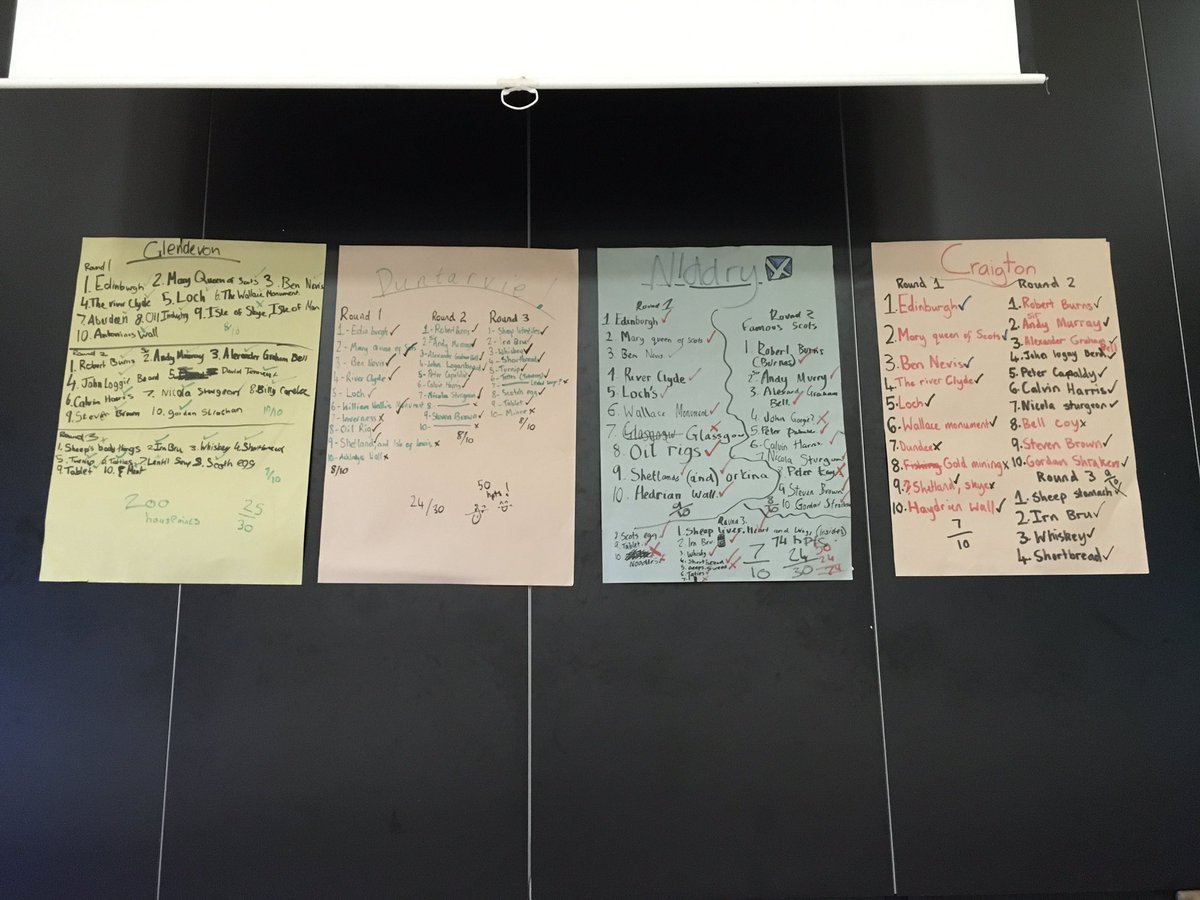 Glendevon
Round 1
1. Edinburgh 2. Mary Queen of Scots 3. Ben Nevis
4. The river Clyde 5. Loch 6. The Wallace Monument
7. Aberdeen 8. Oil Industry 9. Isle of Skye, Isle of Man
8/10
10. Antonious Wall
Round 2
1. Robert Burns 2. Andy Murray 3. Alexander Graham Bell
4. John Loggie Baard 5. David Tennent
6. Calvin Harris 7. Nicola Sturgeon 8. Billy
9. Steven Brown 10. Gordon Strachan 10/10
Round 3
1. Sheep's body 2. Irn Bru 3. Whiskey 4. Shortbread
5. Turnip 7. Lentil Soup 8. Scoth egg
9. Tablet 10. Meat 7/10
200
25
30
Duntarvie!
Round 1
1- Edinburgh
2- Mary queen of Scots
3- Ben Nevis
4- River Clyde
5- Loch
6- William Monument
7- Inverness
8- Oil Rig
9- Shetland and Isle of
10- Wall
8/10
Round 2
1- Robert Burns
2- Andy Murray
3- Alexander Graham Bell
4- John
5- Peter Capaldi
6- Calvin Harris
7- Nicola Sturgeon
8-
9- Steven Brown
10-
8/10
Round 3
1- Sheep
2- Irn Bru
3- Whiskey
4- Shortbread
5- Turnip
6-
7- Lentil soup?
8- Scotch egg
9- Tablet
10- Mince
8/10
24/30
50
hpts!
Niddry
Round 1
1. Edinburgh
2. Mary queen of Scots
3. Ben Nevis
4. River Clyde
5. Loch's
6. Wallace Monument
7. Glasgow
8. Oil rigs
9. Shetlands (and) orkina
10. Hedrian Wall
9
10
Round 2
Famous Scots
1. Robert Burns
(Burnas)
2. Andy Murry
3. Graham
Bell
4. John
5. Peter
6. Calvin Harris
7. Nicola Sturgun
8. Peter Kay
9. Steven Brown
10. Gordon Strachan
8
10
Round 3.
1. Sheep liver, Heart and lungs, (insides)
2. Irn Bru
3. Whisky
4. Shortbrown
8. Scots egg
9. Tablet
10. Noodles
7
10
74 hpts.
24
30
50
24
74
Craigton
Round 1
1. Edinburgh
2. Mary queen of Scots
3. Ben Neviss
4. The river Clyde
5. Loch
6. Wallace monument
7. Dundee
8. Gold mining
9. Shetland, skye
10. Haydrien Wall
7
10
Round 2
1. Robert Burns
2. Sir Andy Murray
3. Alexander Graham Bell
4. John logay Berd
5. Peter Capaldy
6. Calvin Harris
7. Nicola sturgeon
8. Bell coy
9. Steven Brown
10. Gordan Shraken
9
10
Round 3
1. Sheep stomach
2. Irn Bru
3. Whiskey
4. Shortbread